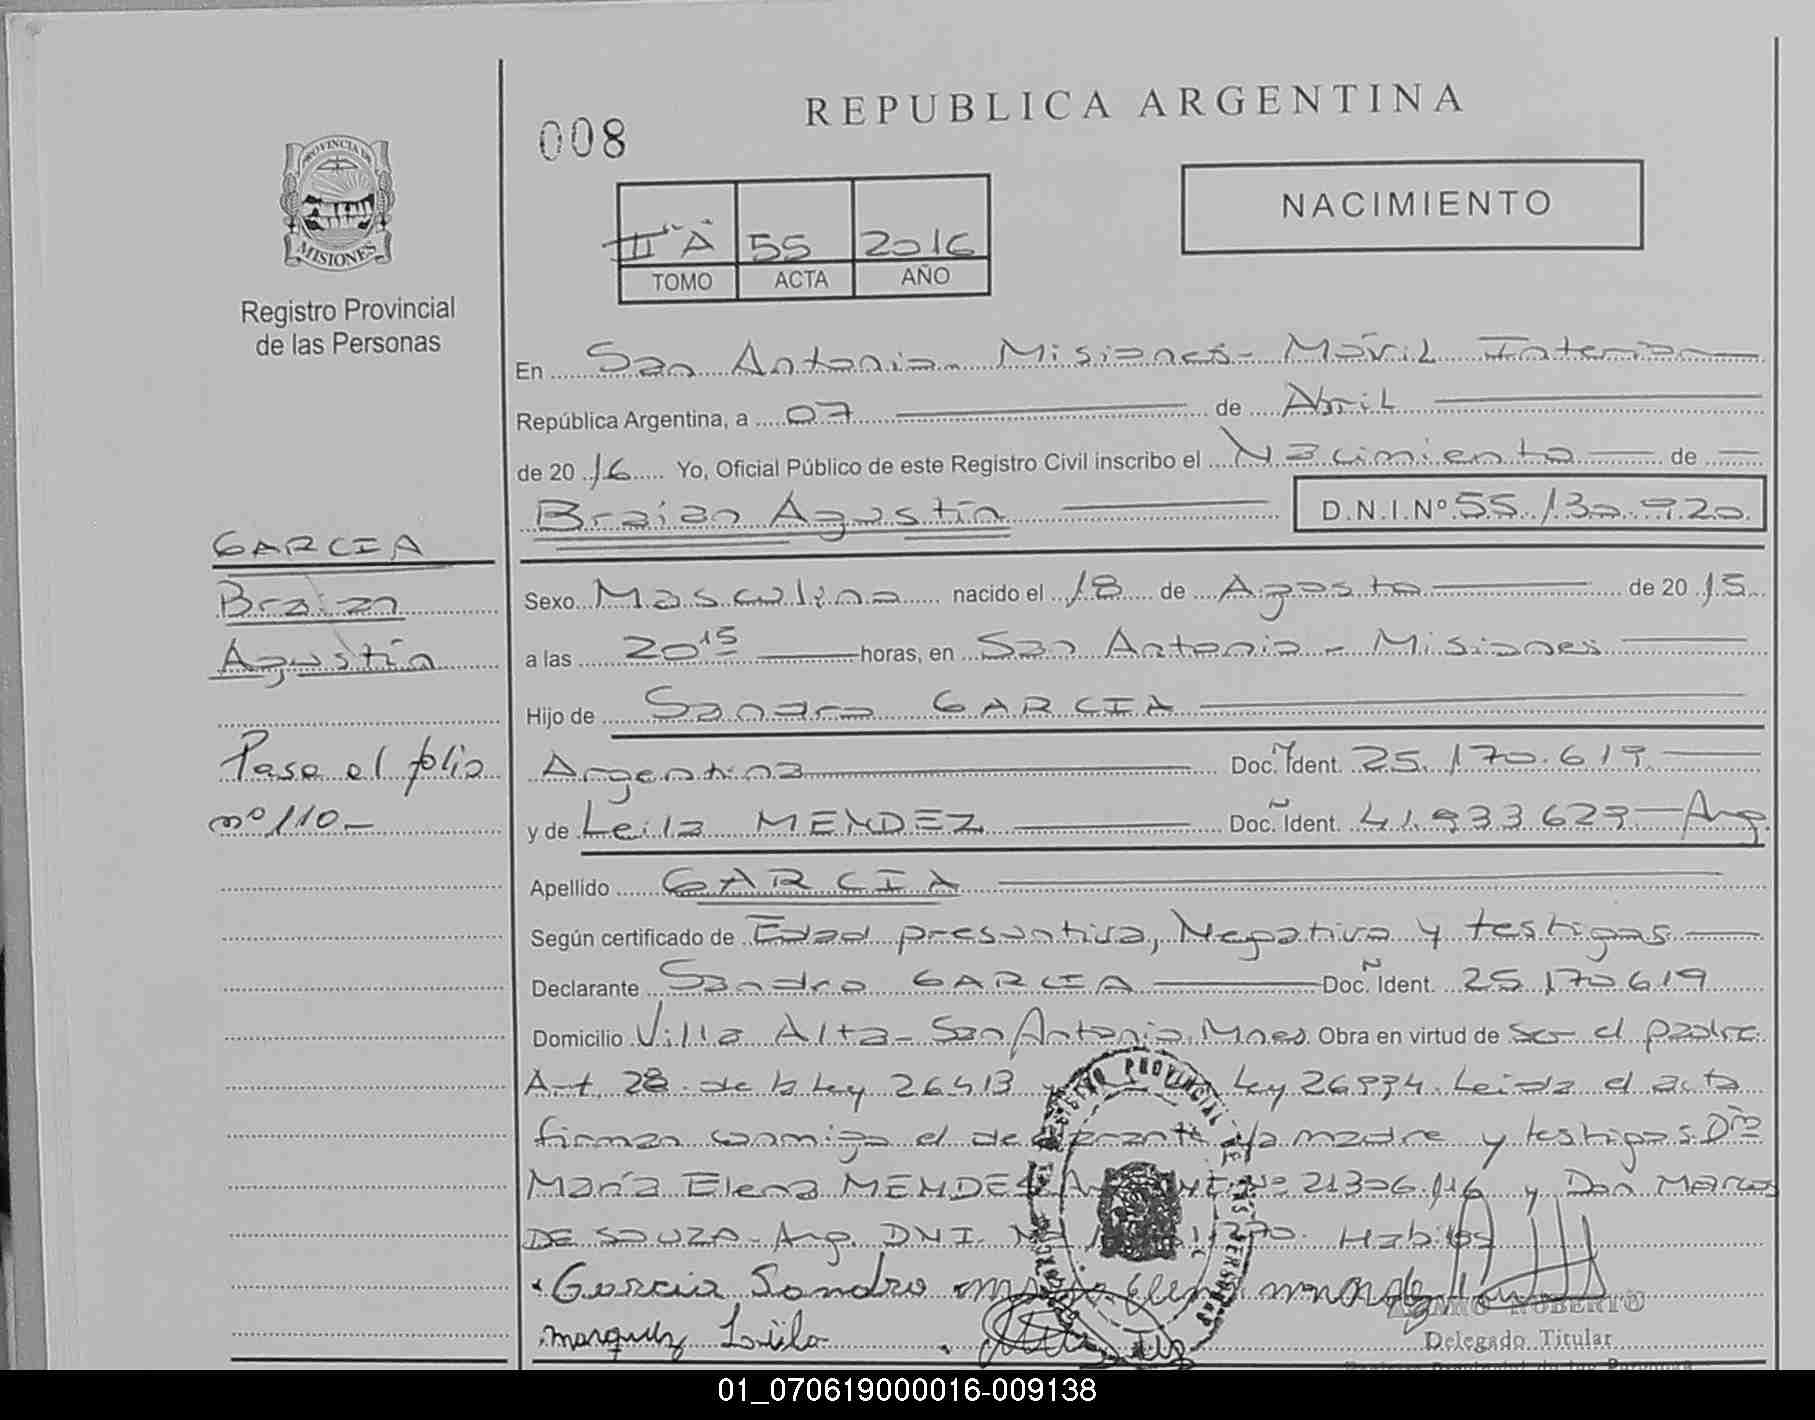 REPUBLICA ARGENTINA
008
NACIMIENTO
PROVINCIA DE
MISIONES
Registro Provincial
de las Personas
II "A" 55 2016
TOMO ACTA AÑO
En San Antonio Misiones - Móvil Interior
República Argentina, a 07 de Abril
de 20 16 Yo, Oficial Público de este Registro Civil inscribo el Nacimiento de
Braian Agustín D.N.I.Nº 55.130.920
GARCIA
Braian
Agustín
Pase al folio
nº 110.-
Sexo Masculino nacido el 18 de Agosto de 20 15
a las 20 15 horas, en San Antonio - Misiones
Hijo de Sandro GARCIA
Argentina Doc. Ident. 25.170.619
y de Leila MENDEZ Doc. Ident. 41.933.629 - Arg.
Apellido GARCIA
Según certificado de Edad presuntiva, Negativo y testigos
Declarante Sandro GARCIA Doc. Ident. 25.170.619
Domicilio Villa Alta - San Antonio, Mnes. Obra en virtud de ser el padre.
Art. 28 de la Ley 26.413 y Ley 26.994. Leida el acta
firman conmigo el declarante, la madre y testigos. Dña
María Elena MENDEZ Arg. DNI Nº 21.306.116 y Don Marcos
DE SOUZA - Arg. DNI. Nº Habiles
Garcia Sandro
marquez Leila
REGISTRO PROVINCIAL DE LAS PERSONAS
ROBERTO
Delegado Titular
Registro Provincial de las Personas
01_070619000016-009138